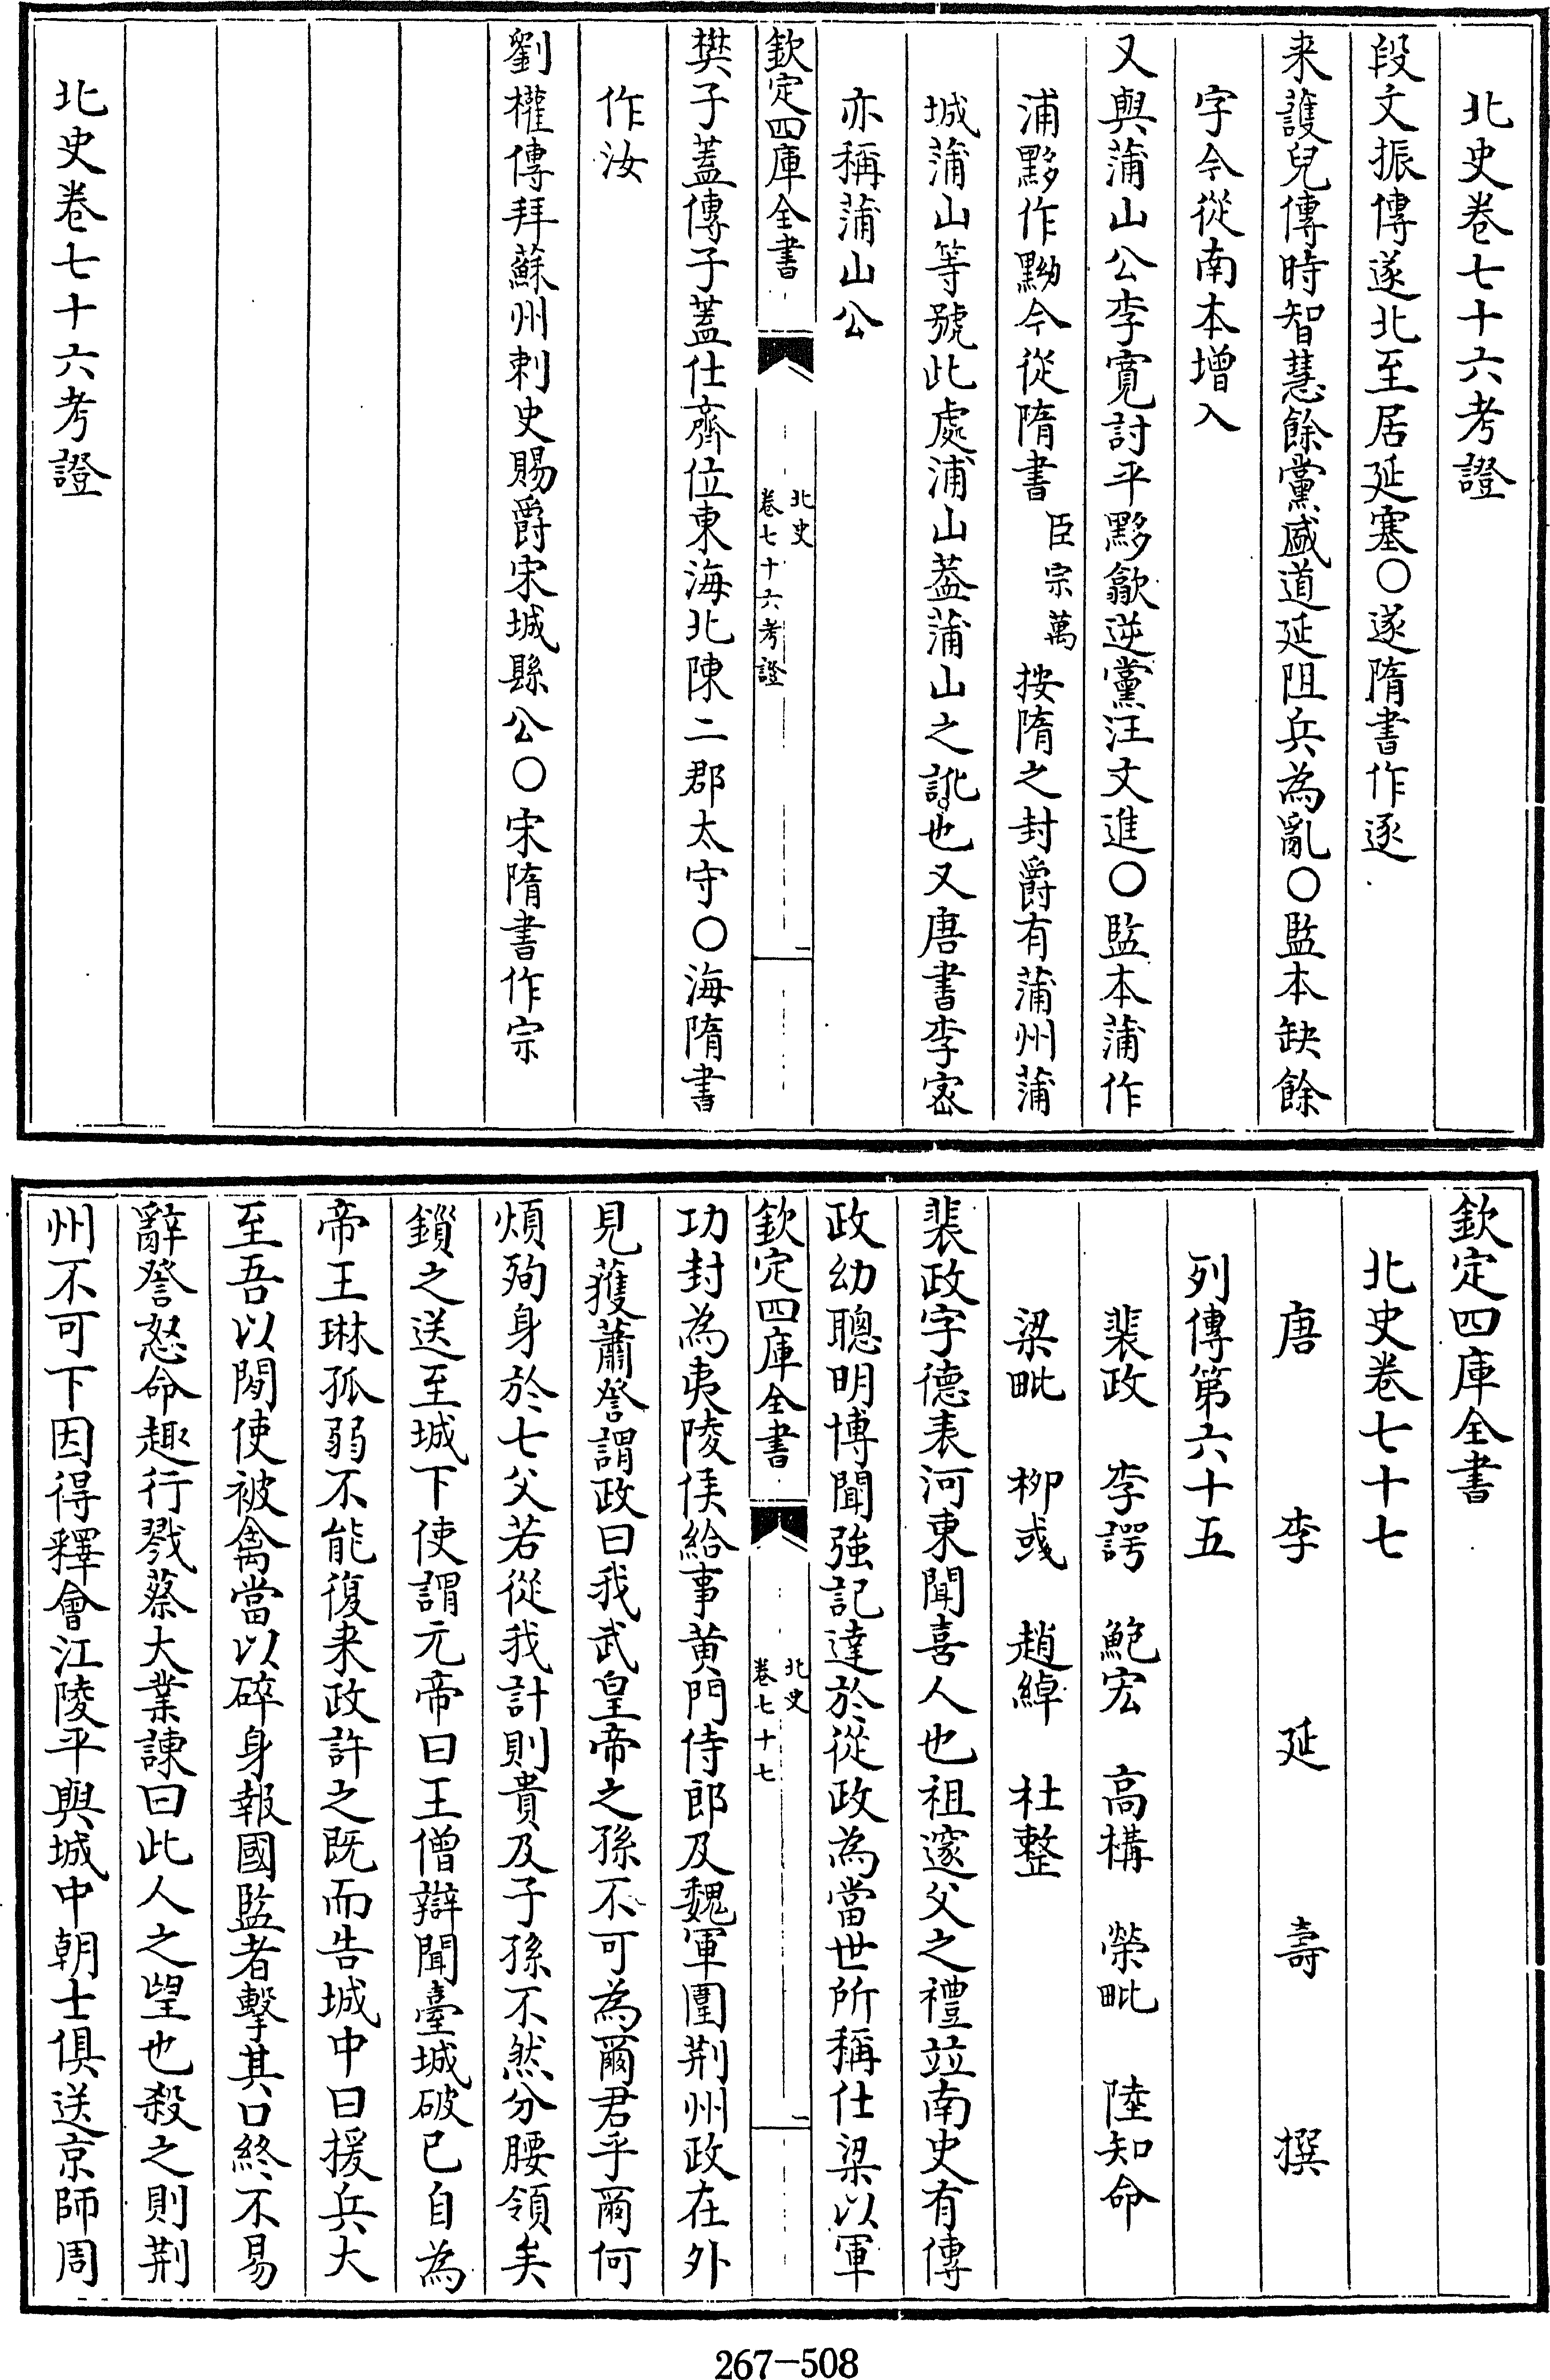 北史卷七十六考證
段文振傳遂北至居延塞〇遂隋書作逐
来護兒傳時智慧餘黨盛道延阻兵為亂〇監本缺餘
字今從南本增入
又與蒲山公李寛討平黟歙逆黨汪文進〇監本蒲作
浦黟作黝今從隋書臣宗萬按隋之封爵有蒲州蒲
城蒲山等號此處浦山葢蒲山之訛也又唐書李宻
亦稱蒲山公
欽定四庫全書
北史
卷七十六考證
一
樊子蓋傳子蓋仕齊位東海北陳二郡太守〇海隋書
作汝
劉權傳拜蘇州刺史賜爵宋城縣公〇宋隋書作宗
北史卷七十六考證
欽定四庫全書
北史卷七十七
唐李延壽撰
列傳第六十五
裴政 李諤 鮑宏 高構 榮毗 陸知命
梁毗 柳彧 趙綽 杜整
裴政字德表河東聞喜人也祖邃父之禮竝南史有傳
政幼聰明博聞強記達於從政為當世所稱仕梁以軍
欽定四庫全書
北史
卷七十七
一
功封為夷陵侯給事黄門侍郎及魏軍圍荆州政在外
見獲蕭詧謂政曰我武皇帝之孫不可為爾君乎爾何
煩殉身於七父若從我計則貴及子孫不然分腰領矣
鎻之送至城下使謂元帝曰王僧辯聞臺城破已自為
帝王琳孤弱不能復来政許之既而告城中曰援兵大
至吾以間使被禽當以碎身報國監者擊其口終不易
辭詧怒命趣行戮蔡大業諫曰此人之望也殺之則荆
州不可下因得釋會江陵平與城中朝士俱送京師周
267-508